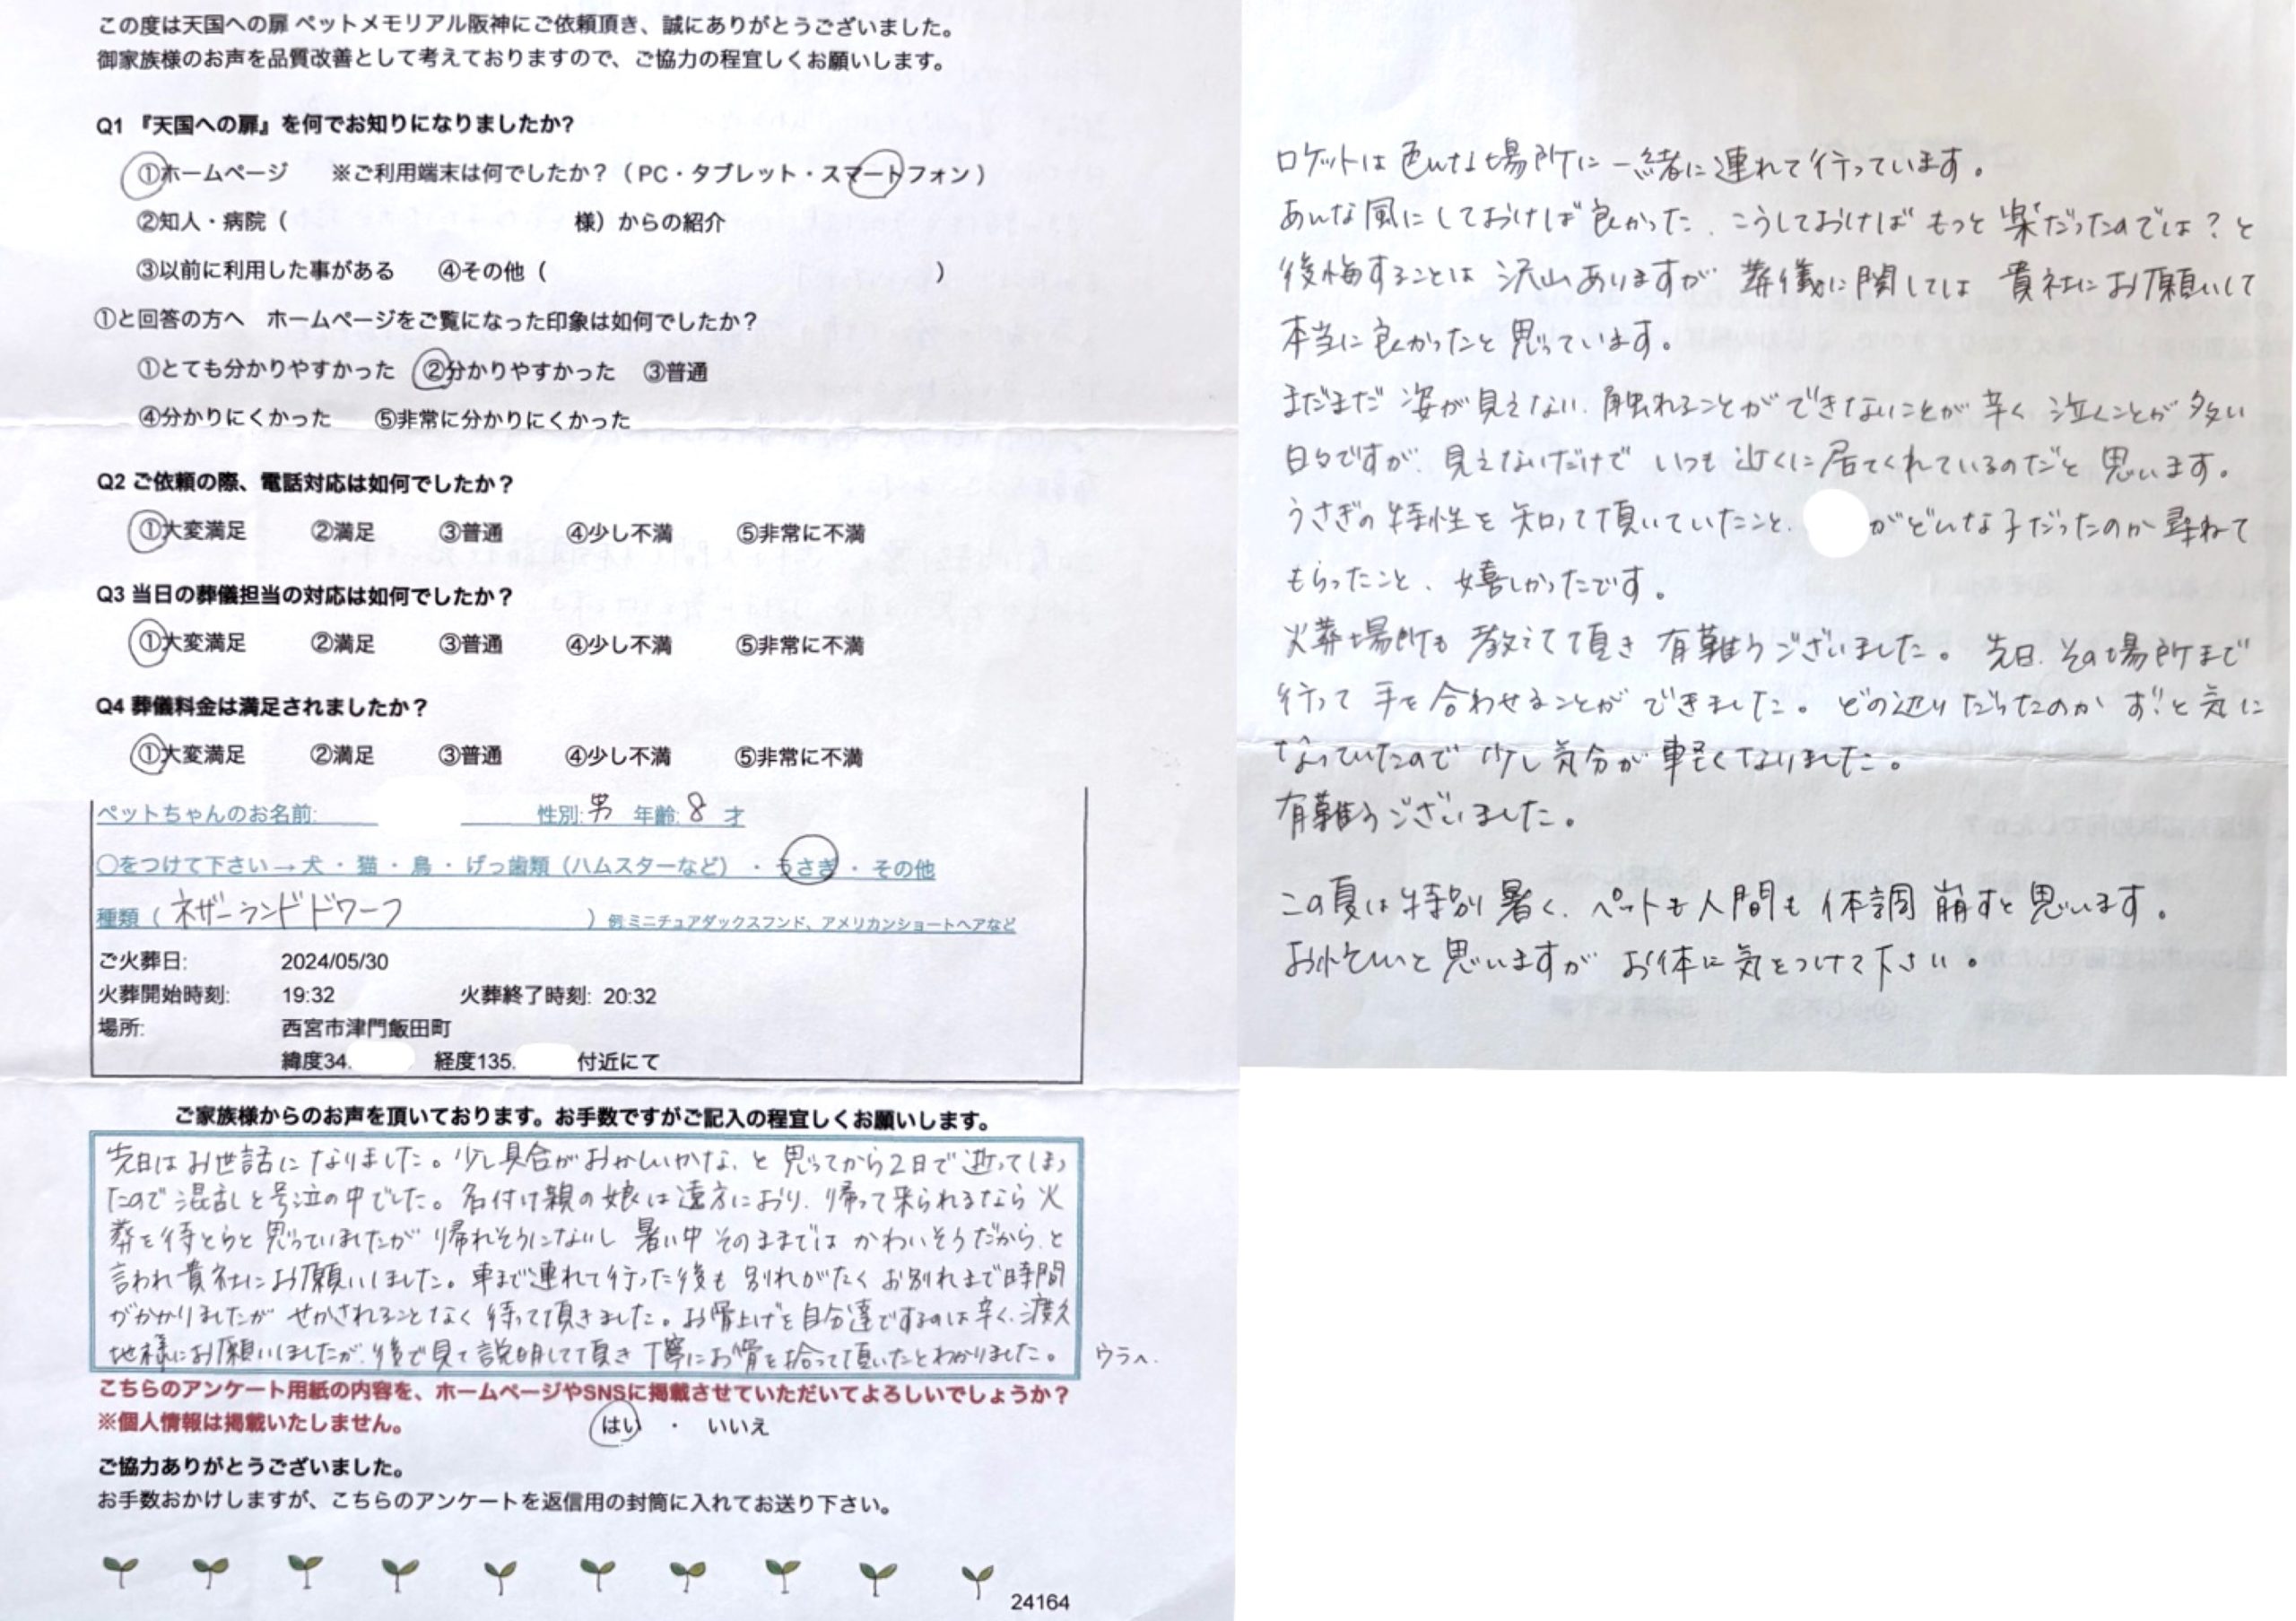 この度は天国への扉 ペットメモリアル阪神にご依頼頂き、誠にありがとうございました。
御家族様のお声を品質改善として考えておりますので、ご協力の程宜しくお願いします。
Q1 『天国への扉』を何でお知りになりましたか?
①ホームページ ※ご利用端末は何でしたか?(PC・タブレット・スマートフォン)
②知人・病院( 様)からの紹介
③以前に利用した事がある ④その他( )
①と回答の方へ ホームページをご覧になった印象は如何でしたか?
①とても分かりやすかった ②分かりやすかった ③普通
④分かりにくかった ⑤非常に分かりにくかった
Q2 ご依頼の際、電話対応は如何でしたか?
①大変満足 ②満足 ③普通 ④少し不満 ⑤非常に不満
Q3 当日の葬儀担当の対応は如何でしたか?
①大変満足 ②満足 ③普通 ④少し不満 ⑤非常に不満
Q4 葬儀料金は満足されましたか?
①大変満足 ②満足 ③普通 ④少し不満 ⑤非常に不満
ペットちゃんのお名前: 性別:男 年齢:8 才
○をつけて下さい→犬・猫・鳥・げっ歯類(ハムスターなど)・うさぎ・その他
種類(ネザーランドドワーフ)例:ミニチュアダックスフンド、アメリカンショートヘアなど
ご火葬日: 2024/05/30
火葬開始時刻: 19:32 火葬終了時刻: 20:32
場所: 西宮市津門飯田町
緯度34. 経度135. 付近にて
ご家族様からのお声を頂いております。お手数ですがご記入の程宜しくお願いします。
先日はお世話になりました。少し具合がおかしいかな、と思ってから2日で逝ってしまっ
たので混乱と号泣の中でした。名付け親の娘は遠方におり、帰って来られるなら火
葬を待とうと思っていましたが帰れそうにないし暑い中そのままではかわいそうだから、と
言われ貴社にお願いしました。車まで連れて行った後も別れがたくお別れまで時間
がかかりましたがせかされることなく待って頂きました。お骨上げを自分達でするのは辛く、渡久
地様にお願いしましたが、後で見て説明して頂き丁寧にお骨を拾って頂いたとわかりました。
ウラへ.
こちらのアンケート用紙の内容を、ホームページやSNSに掲載させていただいてよろしいでしょうか?
※個人情報は掲載いたしません。 はい ・ いいえ
ご協力ありがとうございました。
お手数おかけしますが、こちらのアンケートを返信用の封筒に入れてお送り下さい。
24164
ロケットは色んな場所に一緒に連れて行っています。
あんな風にしておけば良かった、こうしておけばもっと楽だったのでは?と
後悔することは沢山ありますが葬儀に関しては貴社にお願いして
本当に良かったと思っています。
まだまだ姿が見えない、触れることができないことが辛く泣くことが多い
日々ですが、見えないだけでいつも近くに居てくれているのだと思います。
うさぎの特性を知って頂いていたこと、 がどんな子だったのか尋ねて
もらったこと、嬉しかったです。
火葬場所も教えて頂き有難うございました。先日、その場所まで
行って手を合わせることができました。どの辺りだったのかずっと気に
なっていたので少し気分が軽くなりました。
有難うございました。
この夏は特別暑く、ペットも人間も体調崩すと思います。
お忙しいと思いますがお体に気をつけて下さい。